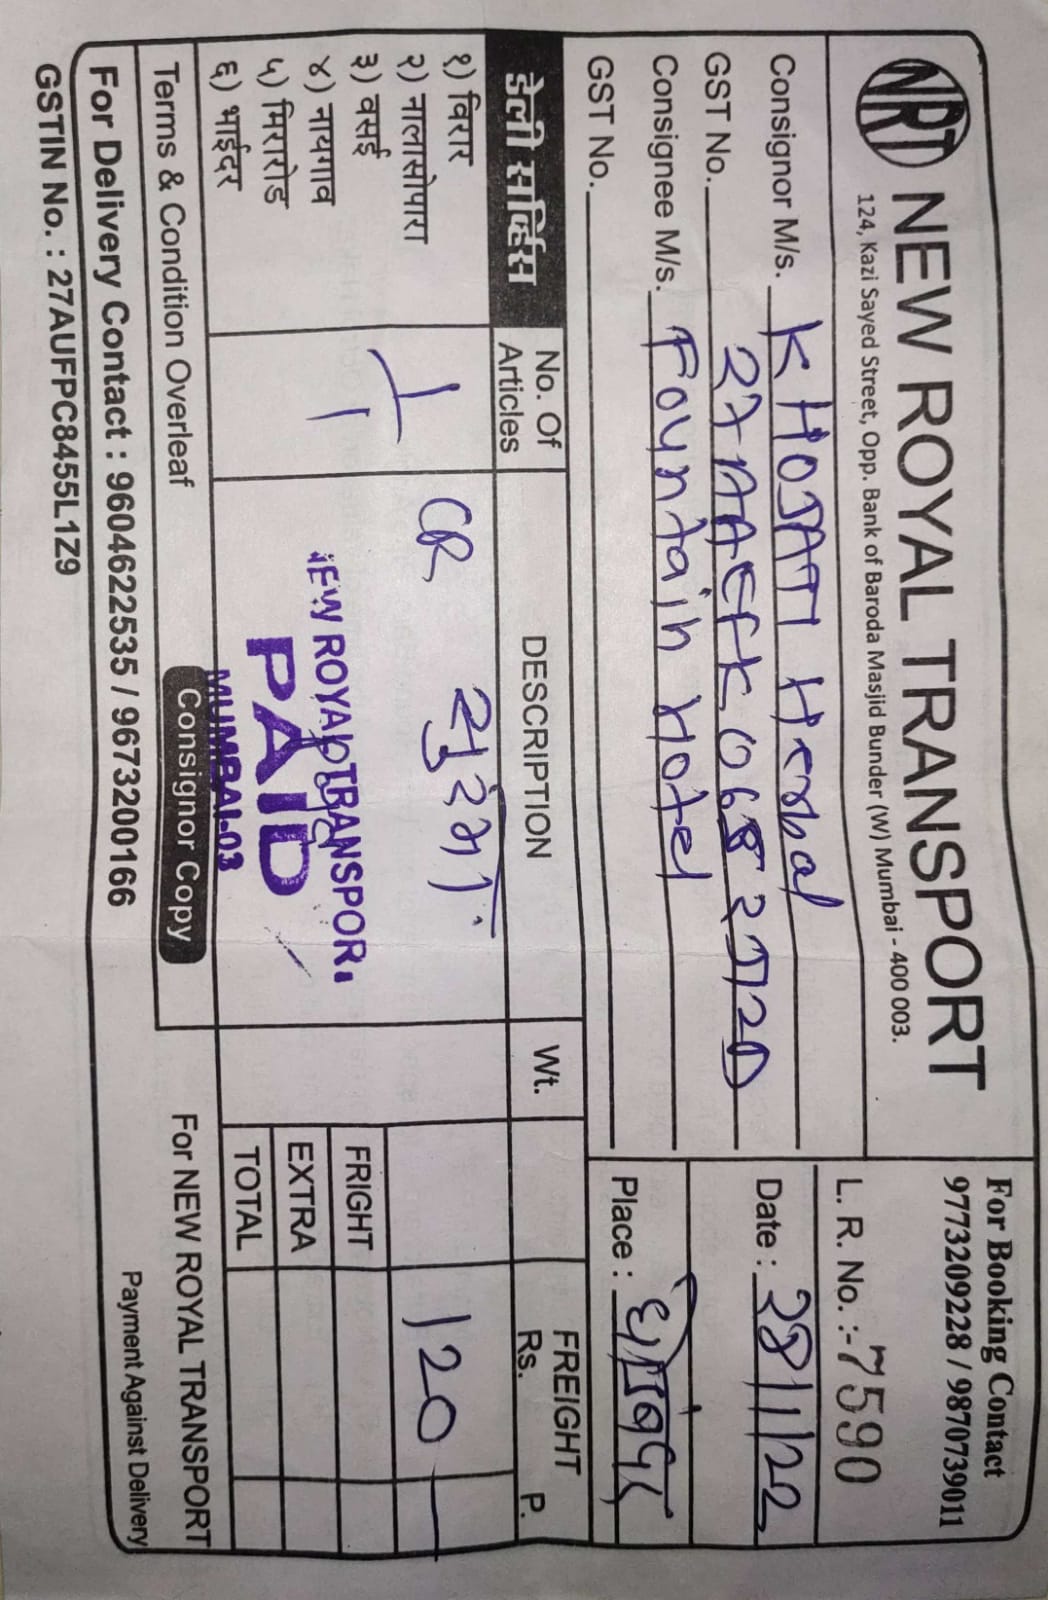 NRT NEW ROYAL TRANSPORT
124, Kazi Sayed Street, Opp. Bank of Baroda Masjid Bunder (W) Mumbai - 400 003.
For Booking Contact
9773209228 / 9870739011
L. R. No. :- 7590
Consignor M/s. KHOJATI Herbal
Date :
GST No.
Consignee M/s. Fountain Hotel
Place :
GST No.
डेली सर्व्हिस
No. Of Articles
DESCRIPTION
Wt.
FREIGHT
Rs. P.
१) विरार
२) नालासोपारा
३) वसई
४) नायगाव
५) मिरारोड
६) भाईदर
1
CR
120
NEW ROYAL TRANSPORT
PAID
MUMBAI-03
FRIGHT
EXTRA
TOTAL
Terms & Condition Overleaf
Consignor Copy
For NEW ROYAL TRANSPORT
For Delivery Contact : 9604622535 / 9673200166
Payment Against Delivery
GSTIN No. : 27AUFPC8455L1Z9